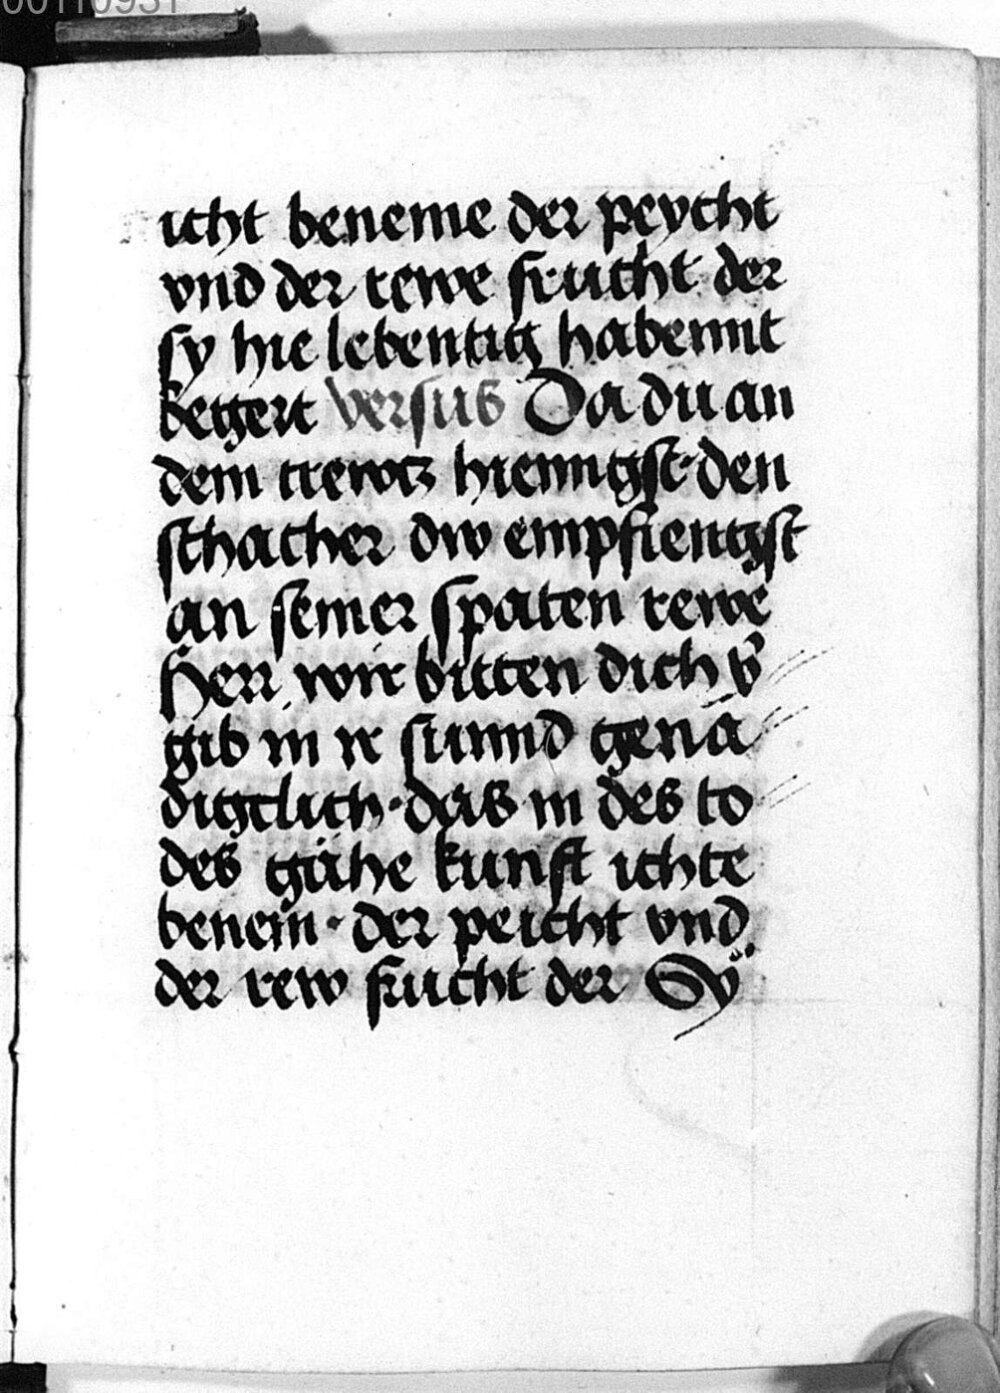 00110931
icht beneme der peycht
vnd der rewe frucht der
sy hie lebentig habennt
begert versus Da du an
dem crewcz hienngst · den
schacher dw empfiengst
an seiner spaten rewe
Herr wir bitten dich v̉
gib in ir sunnd gena
digclich · das in des to
des gähe kunft ichte
benem · der peicht vnd
der rew frucht der Sÿ